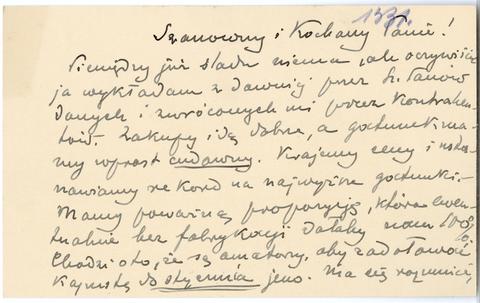 1331.
Szanowny i Kochany Panie!
Pieniędzy już śladu niema, ale oczywiście
ja wykładam z dawniej przez Sz. Panów
danych i zwróconych mi przez kontrahen-
tów. Zakupy idą dobrze, a gatunek ma-
my wprost cudowny. Krajemy ceny i usta-
nawiamy rekord na najwyższe gatunki.-
Mamy poważną propozycję, która ewen-
tualnie bez fabrykacji dałaby nam 100%.
Chodzi o to, że są amatorzy, aby zadołować
kapustę do stycznia jeno. Ma się rozumieć,